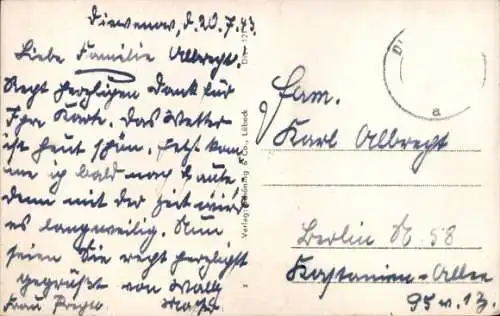 Dievenow, d. 20.7.43.
Liebe Familie Albrecht.
Recht herzlichen Dank für
Ihre Karte. Das Wetter
ist heut schön. Jetzt kom
me ich bald nach Hause
denn mit der Zeit wird
es langweilig. Nun
seien Sie recht herzlichst
gegrüßt von
Frau
Verlag: Schöning & Co., Lübeck
Fam.
Karl Albrecht
Berlin N. 58
Kastanien-Allee
95 v. IZ.
a